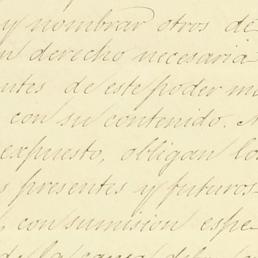 y nombrar otros de
n derecho necesaria
ntes de este poder m
con su contenido. A
expuesto, obligan lo
s presentes y futuros
, con sumision espe
de la causa del